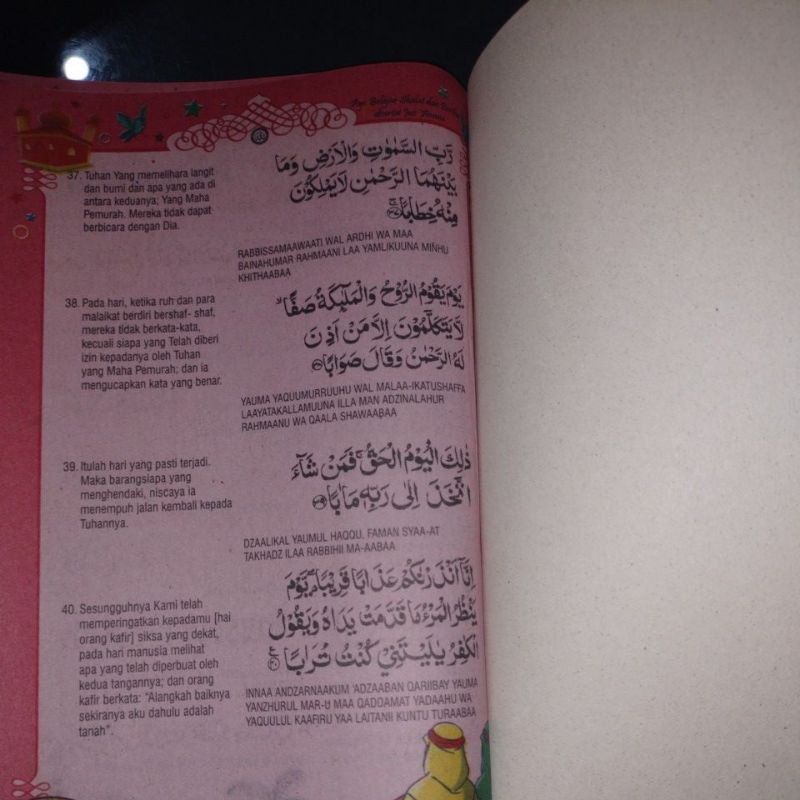 Ayo Belajar Shalat dan
37. Tuhan Yang memelihara langit
dan bumi dan apa yang ada di
antara keduanya; Yang Maha
Pemurah. Mereka tidak dapat
berbicara dengan Dia.
رَّبِّ السَّمٰوٰتِ وَالْاَرْضِ وَمَا
بَيْنَهُمَا الرَّحْمٰنِ لَا يَمْلِكُوْنَ
مِنْهُ خِطَابًا ۚ ٣٧
RABBISSAMAAWAATI WAL ARDHI WA MAA
BAINAHUMAR RAHMAANI LAA YAMLIKUUNA MINHU
KHITHAABAA
38. Pada hari, ketika ruh dan para
malaikat berdiri bershaf- shaf,
mereka tidak berkata-kata,
kecuali siapa yang Telah diberi
izin kepadanya oleh Tuhan
yang Maha Pemurah; dan ia
mengucapkan kata yang benar.
يَوْمَ يَقُوْمُ الرُّوْحُ وَالْمَلٰۤىِٕكَةُ صَفًّا ۙ
لَّا يَتَكَلَّمُوْنَ اِلَّا مَنْ اَذِنَ
لَهُ الرَّحْمٰنُ وَقَالَ صَوَابًا ٣٨
YAUMA YAQUUMURRUUHU WAL MALAA-IKATUSHAFFA
LAAYATAKALLAMUUNA ILLA MAN ADZINALAHUR
RAHMAANU WA QAALA SHAWAABAA
39. Itulah hari yang pasti terjadi.
Maka barangsiapa yang
menghendaki, niscaya ia
menempuh jalan kembali kepada
Tuhannya.
ذٰلِكَ الْيَوْمُ الْحَقُّ ۚ فَمَنْ شَاۤءَ
اتَّخَذَ اِلٰى رَبِّهٖ مَاٰبًا ٣٩
DZAALIKAL YAUMUL HAQQU, FAMAN SYAA-AT
TAKHADZ ILAA RABBIHII MA-AABAA
40. Sesungguhnya Kami telah
memperingatkan kepadamu [hai
orang kafir] siksa yang dekat,
pada hari manusia melihat
apa yang telah diperbuat oleh
kedua tangannya; dan orang
kafir berkata: "Alangkah baiknya
sekiranya aku dahulu adalah
tanah".
اِنَّآ اَنْذَرْنٰكُمْ عَذَابًا قَرِيْبًا ەۙ يَّوْمَ
يَنْظُرُ الْمَرْءُ مَا قَدَّمَتْ يَدَاهُ وَيَقُوْلُ
الْكٰفِرُ يٰلَيْتَنِيْ كُنْتُ تُرَابًا ࣖ ٤٠
INNAA ANDZARNAAKUM 'ADZAABAN QARIIBAY YAUMA
YANZHURUL MAR-U MAA QADDAMAT YADAAHU WA
YAQUULUL KAAFIRU YAA LAITANII KUNTU TURAABAA